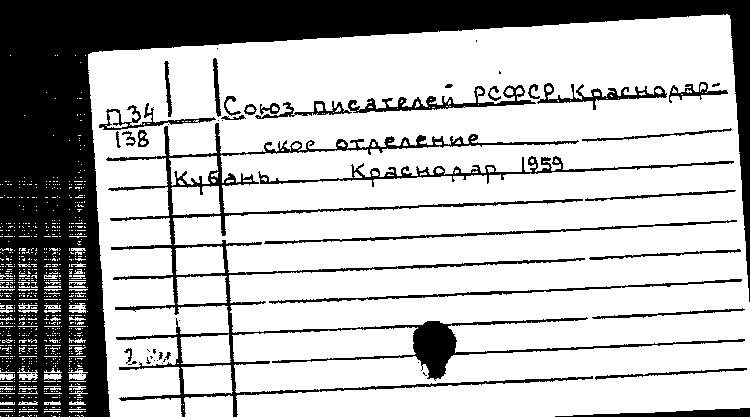 П34 Союз писателей РСФСР. Краснодар-
138 ское отделение
Кубань. Краснодар, 1959